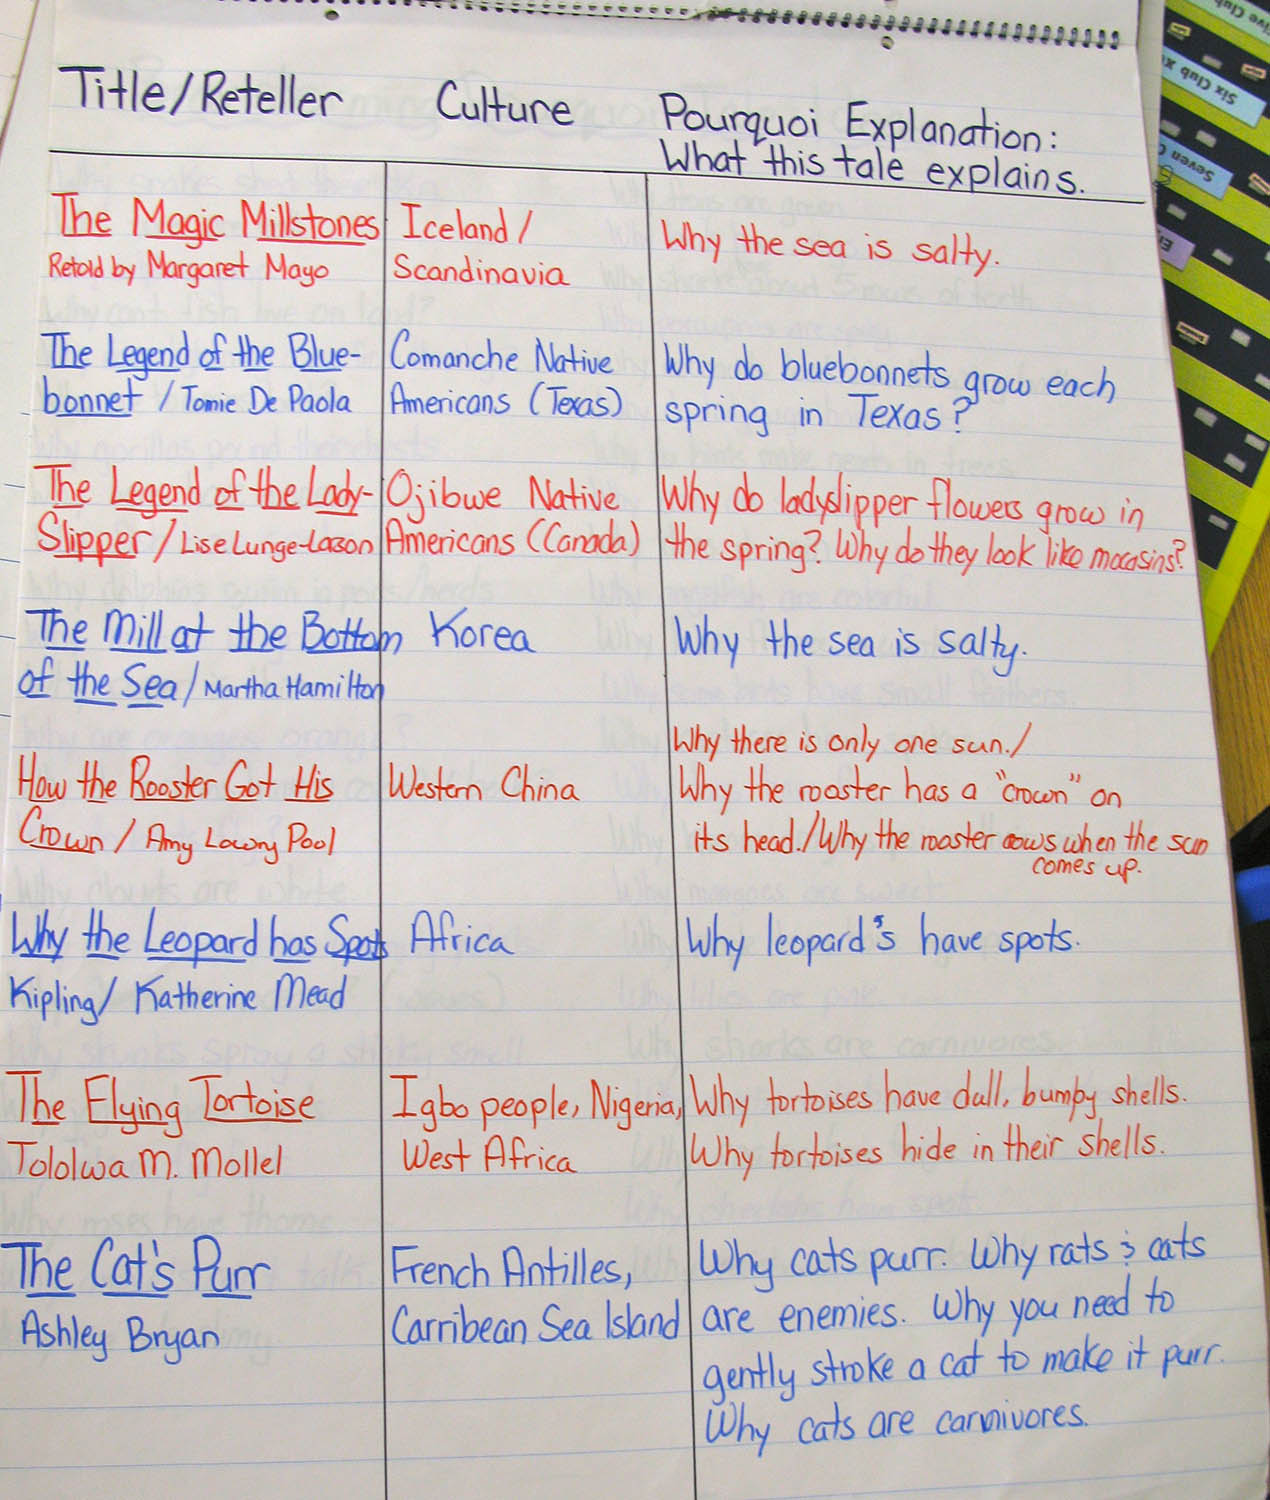 Title/Reteller Culture Pourquoi Explanation:
What this tale explains.
The Magic Millstones
Retold by Margaret Mayo
Iceland/
Scandinavia
Why the sea is salty.
The Legend of the Blue-
bonnet / Tomie De Paola
Comanche Native
Americans (Texas)
Why do bluebonnets grow each
spring in Texas?
The Legend of the Lady-
Slipper / Lise Lunge-Larson
Ojibwe Native
Americans (Canada)
Why do ladyslipper flowers grow in
the spring? Why do they look like mocasins?
The Mill at the Bottom
of the Sea / Martha Hamilton
Korea
Why the sea is salty.
How the Rooster Got His
Crown / Amy Lowry Pool
Western China
Why there is only one sun./
Why the rooster has a "crown" on
its head./Why the rooster cows when the sun
comes up.
Why the Leopard has Spots
Kipling/ Katherine Mead
Africa
Why leopard's have spots.
The Flying Tortoise
Tololwa M. Mollel
Igbo people, Nigeria,
West Africa
Why tortoises have dull, bumpy shells.
Why tortoises hide in their shells.
The Cat's Purr
Ashley Bryan
French Antilles,
Carribean Sea Island
Why cats purr. Why rats & cats
are enemies. Why you need to
gently stroke a cat to make it purr.
Why cats are carnivores.
Six Club
Seven